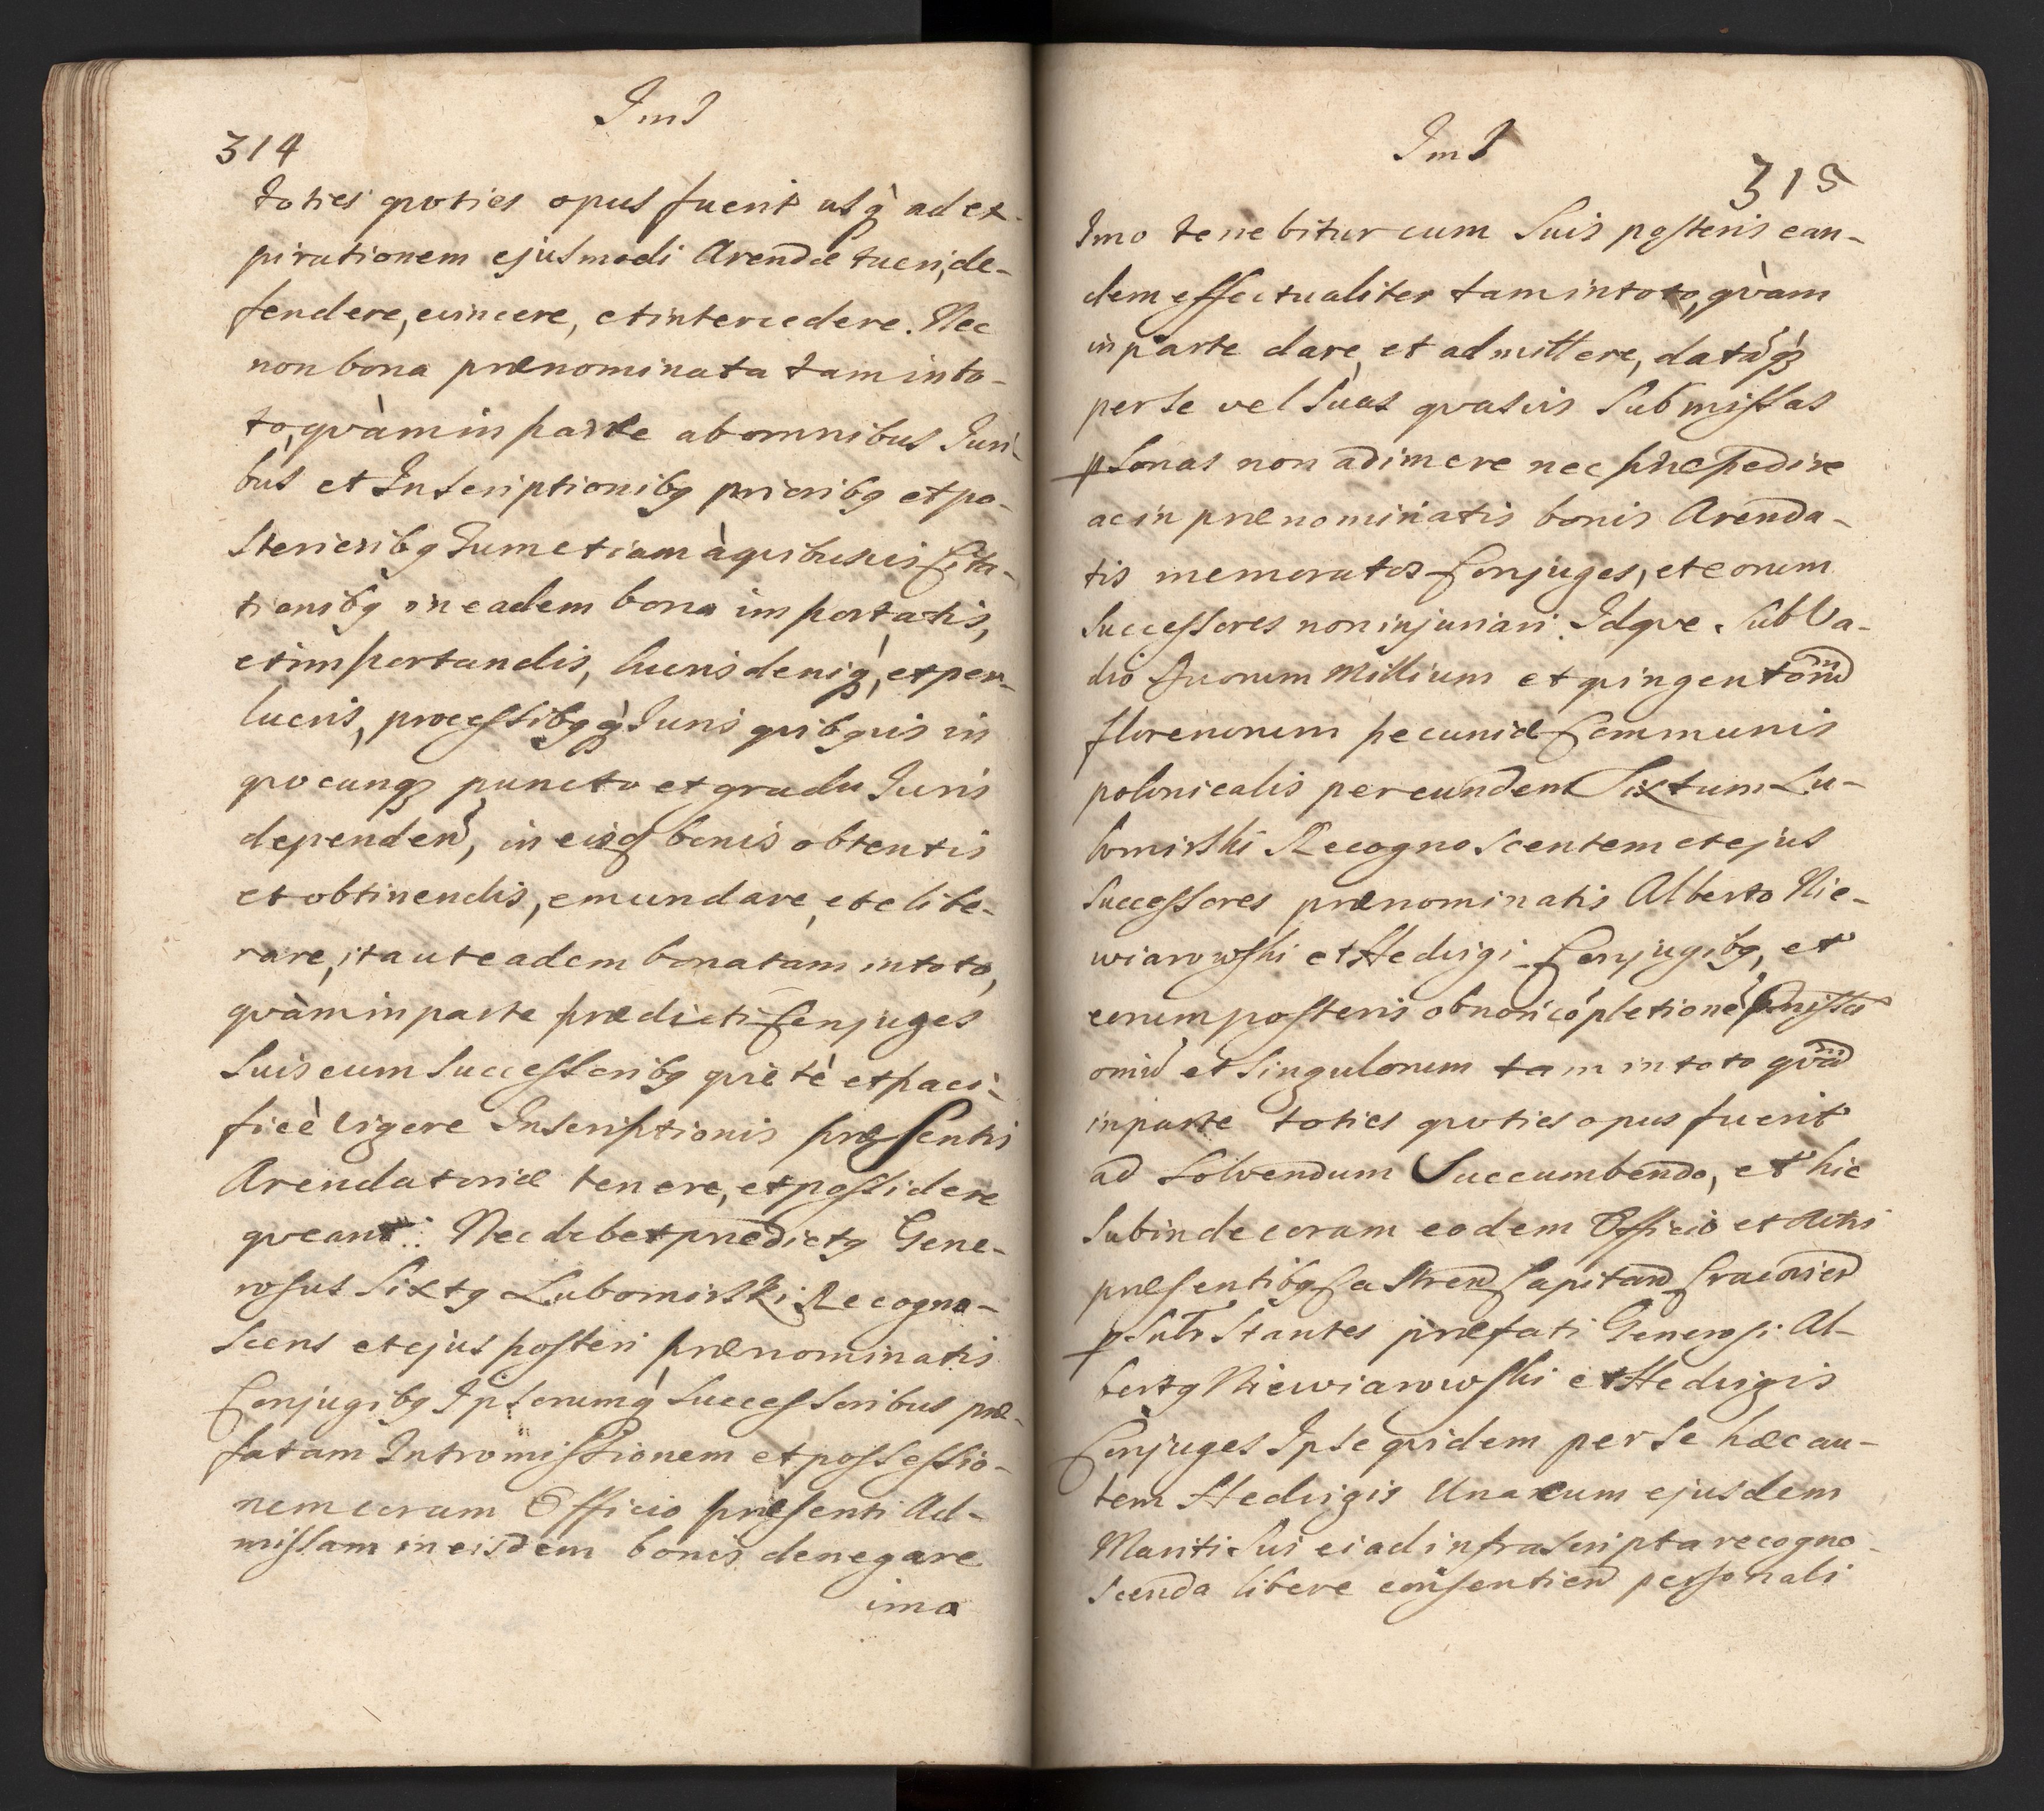 Ims
314
toties qvoties opus fuerit usq̀ ad ex-
pirationem ejusmodi Arendæ tueri, de-
fendere, evincere, et intercedere. Nec
non bona prænominata tam in to-
to, qvàm in parte ab omnibus Juri-
bus et Inscriptionibq prioribq et po-
sterioribq Tum etiam à qvibusvis Cita-
tionibq in eadem bona importatis,
et importandis, lucris deniq̀, et per-
lucris, processibqq̀ Juris qvibqvis in
qvocunqꝫ puncto et gradu Juris
dependen, in eisd bonis obtentis
et obtinendis, emundare, et elibe-
rare, ita ut eadem bona tam in toto,
qvàm in parte prædicti Conjuges
Suis cum Successoribq qviete et paci-
ficè vigore Inscriptionis præsentis
Arendatoriæ tenere, et possidere
qveant. Nec debet prædictq Gene-
rosus Sixtq Lubomirski Recogno-
scens et ejus posteri prænominatis
Conjugibq Ipsorumq̀ Successoribus præ-
fatam Intromissionem et possessio-
nem coram Officio præsenti Ad-
missam in eisdem bonis denegare
imo
Ims
315
Imo tenebitur cum Suis posteris ean-
dem effectualiter tam in toto, qvàm
in parte dare, et admittere, datāqꝫ
per Se vel Suas qvasvis Submissas
ꝑsonas non adimere nec præpedire
ac in prænominatis bonis Arenda-
tis memoratos Conjuges, et eorum
Successores non injuriari. Idqve Sub Va-
dio Duorum Millium et qvingentom
florenorum pecuniæ Communis
polonicalis per eundem Sixtum Lu-
bomirski Recognoscentem et ejus
Successores prænominatis Alberto Nie-
wiarowski et Hedvigi Conjugibq, et
eorum posteris ob non cōpletionē pmissos
omiu et Singulorum tam in toto qvam
in parte toties qvoties opus fuerit
ad Solvendum Succumbendo, et hic
Subinde coram eodem Officio et Actis
præsentibq Castren Capitan Cracovien
ꝑsubstantes præfati Generosi Al-
bertq Niewiarowski et Hedvigis
Conjuges Ipse qvidem per Se hæc au-
tem Hedvigis Una cum ejusdem
Mariti Sui ei ad infrascripta recogno-
scenda libere consentien personali